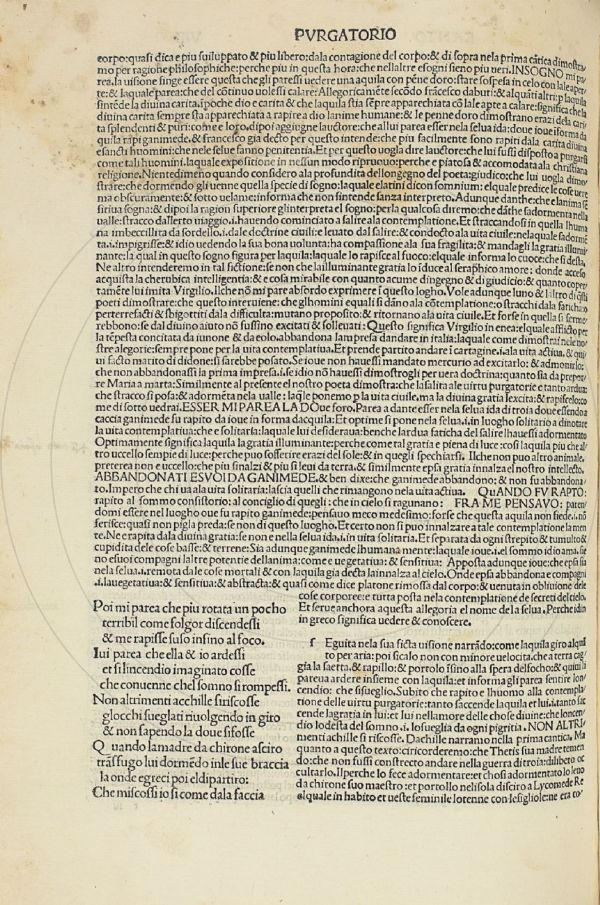 PVRGATORIO
corpo:quasi dica e piu suiluppato & piu libero:dala contagione del corpo:& di sopra nela prima cãtica dimostra
mo per ragione philosophiche:perche piu in questa hora:che nellaltre e sogni sieno piu ueri.INSOGNO mi pa
rea.la uisione singe essere questa che gli paressi uedere una aquila con pẽne doro:stare sospesa in celo con lale aper
te:& laquale parea:che del cõtinuo uolessi calare:Allegoricamẽte secõdo frãcesco daburi:& alquãti altri:p laquila
sintẽde la diuina carita.i poche dio e carita & che laquila stia sẽpre apparechiata cõ lale apte a calare:significa che la
diuina carita sempre sta apparechiata a rapire a dio lanime humane:& le penne doro dimostrano erazi dela cari
ta splendenti & puri:come e loro.dipoi aggiugne lauctore:che a llui parea esser nela selua ida:doue ioue i forma da
quila rapi ganimede.& francesco gia decto per questo intende:che piu facilmente sono rapiti dala carita diuina
e sancti huomini:che nele selue fanno penitentia.Et per questo uogla dire lauctore:che lui fussi disposto a purgarsi
come tali huomini.laquale expositione in nessun modo ripruouo:perche e piatosa & accomodata ala christiana
religione.Nientedimeno quando considero ala profundita dellongegno del poeta:giudico:che lui uogla dimo
strare:che dormendo gli uenne quella specie di sogno:laquale elatini dicon somnium:elquale predice le cose uere
ma obscuramente:& sotto uelame:informa che non sintende sanza interpreto.Adunque danthe:che elanima sẽ
sitiua sogna:& dipoi la ragion superiore glinterpreta el sogno:per la qualcosa diremo:che dãthe sadormenta nella
ualle:stracco dallerto uiaggio.i.hauendo cominciato a salire ala contemplatione.Et straccandosi in quella lhuma
na imbeccillita da sordello.i.dale doctrine ciuili:e leuato dal salire:& condocto ala uita ciuile:nelaquale sadormẽ
ta.i.impigrisse:& idio uedendo la sua bona uolunta:ha compassione ala sua fragilita:& mandagli la gratia illumi
nante:la qual in questo sogno figura per laquila:laquale lo rapisce al fuoco:elquale informa lo cuoce:che si desta.
Ne altro intenderemo in tal fictione:se non che lailluminante gratia lo iduce al seraphico amore: donde acceso
acquista la cherubica intelligentia:& e cosa mirabile con quanto acume dingegno & di giudicio:& quanto coper
tamẽte lui imita Virgilio.Ilche nõ mi pare absordo exprimere ĩ questo logho.Vole adunque luno & laltro di q̃sti
poeti dimostrare:che questo interuiene:che glhomini equali si dãno ala cõtemplatione:o stracchi dala faticha:o
perterrefacti & sbigottiti dala difficulta:mutano proposito:& ritornano ala uita ciuile.Et forse in quella si ferme
rebbono:se dal diuino aiuto nõ fussino excitati & solleuati:Questo significa Virgilio in enea:elquale afflicto per
la tẽpesta concitata da iunone & da eolo.abbandona lampresa dandare in italia:laquale come dimostrai nele no
stre alegorie:sempre pone per la uita contemplatiua.Et prende partito andare i cartagine.i.ala uita actiua,& qui
ui facto marito di didone:si sarebbe posato.Se ioue non hauessi mandato mercurio ad excitarlo:& admonirlo:
che non abbandonassi la prima impresa.i.se idio nõ hauessi dimostrogli per uera doctrina:quanto sia da prepor
re Maria a marta:Similmente al presente el nostro poeta dimostra:che la salita ale uirtu purgatorie e tanto ardua:
che stracco si posa:& adormẽta nela ualle: laq̃le ponemo p la uita ciuile.ma la diuina gratia lexcita:& rapiscelo:co
me di sotto uedrai.ESSER MI PAREA LA DOue foro.Parea a dante esser nela selua ida di troia doue essendo a
caccia ganimede fu rapito da ioue in forma daquila:Et optime si pone nela selua.i.in luogho solitario a dinotare
la uita contemplatiua:che e solitaria:laquale lui desideraua:benche lardua faticha del salire lhauessi adormentato
Optimamente significa laquila la gratia illuminante:perche come tal gratia e piena di luce:cosi laquila piu che al
tro uccello sempie di luce:perche puo sofferire erazi del sole:& in quegli spechiarsi. Ilche non puo altro animale.
preterea non e uccello:che piu sinalzi & piu si leui da terra.& similmente epsa gratia innalza el nostro intellecto.
ABBANDONATI E SVOI DA GANIMEDE.& ben dixe:che ganimede abbandono:& non fu abbandona
to.Impero che chi ua ala uita solitaria:lascia quelli che rimangono nela uita actiua. QUANDO FV RAPTO:
rapito al sommo consistorio.al conciglio di quegli:che in cielo si ragunano: FRA ME PENSAVO: paren
domi essere nel luogho oue fu rapito ganimede:pensauo meco medesimo:forse che questa aquila non fiede.i.nõ
ferisce:quasi non pigla preda:se non di questo luogho.Et certo non si puo innalzare a tale contemplatione lamen
te.Ne e rapita dala diuina gratia:se non e nella selua ida.i.in uita solitaria.Et separata da ogni strepito & tumulto:&
cupidita dele cose basse:& terrene:Sia adunque ganimede lhumana mente:laquale ioue.i.el sommo idio ama.se
no e suoi compagni laltre potentie dellanima:come e uegetatiua:& sensitiua: Apposta adunque ioue:che epsa sia
nela selua.i.remota dale cose mortali & con laquila gia decta la innalza al cielo.Onde epsa abbandona e compagni
.i.lauegetatiua:& sensitiua:& abstracta:& quasi come dice platone rimossa dal corpo:& uenuta in obliuione dele
cose corporee:e tutta posta nela contemplatione de secreti del cielo.
Et serue anchora aquesta allegoria el nome dela selua.Perche idin
in greco significa uedere & conoscere.
Poi mi parea che piu rotata un pocho
terribil come folgor discendessi
& me rapisse suso insino al foco.
Iui parea che ella & io ardessi
et si lincendio imaginato cosse
che conuenne chel somno si rompessi.
Non altrimenti acchille si riscosse
glocchi suegliati riuolgendo in giro
& non sapendo la doue si fosse
Quando la madre da chirone a sciro
trãsfugo lui dormẽdo inle sue braccia
la onde e greci poi el dipartiro:
Che mi scossi io si come dala faccia
f Eguita nela sua ficta uisione narrãdo:come laquila giro alqui
to per aria:poi si calo non con minore uelocita.che a terra cag
gia la saetta.& rapillo:& portolo sino alla spera del focho:& quiui li
pareua ardere insieme con laquila:et informa gli parea sentire lon
cendio: che si sueglio.Subito che rapito e lhuomo alla contempla
tione delle uirtu purgatorie:tanto saccende laquila et lui.i.tanto sac
cende la gratia in lui:et lui nellamore delle chose diuine:che loncen
dio lo desta del somno.i.lo sueglia da ogni pigritia.NON ALTRI
menti achille si riscosse.Dachille narramo nella prima cantica.Ma
quanto a questo texto:ciricorderemo:che Thetis sua madre temen
do:che non fussi constrecto andare nella guerra di troia:dilibero oc
cultarlo.Ilperche lo fece adormentare:et chosi adormentato lo leuo
da chirone suo maestro:et portollo nelisola di sciro a Lycomede Re
elquale in habito et ueste feminile lo tenne con le sigliole:ne era co